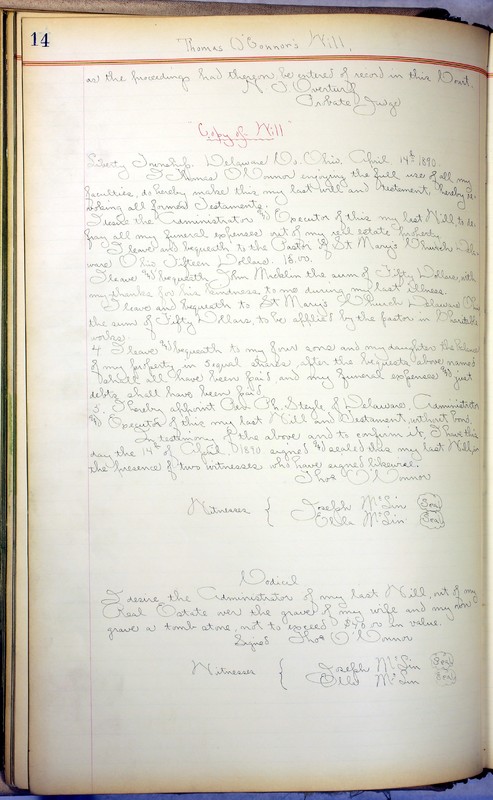 14
Thomas O'Connor's Will,
as the proceedings had thereon be entered of record in this Court.
M. J. Overturf
Probate Judge
"Copy of Will"
Liberty Township, Delaware Co, Ohio, April 14th 1890.
I Thomas O'Connor enjoying the full use of all my
faculties, do hereby make this my last will and testament, hereby re-
voking all former Testaments.
I desire the Administrator & Executor of this my last Will, to de-
fray all my funeral expenses out of my real estate property.
I leave and bequeath to the Pastor of St Mary's Church Dela-
ware Ohio Fifteen Dollars. 15.00.
I leave & bequeath John the sum of Fifty Dollars, with
my thanks for his kindness to me during my last illness.
I leave and bequeath to St Mary's Church Delaware Ohio
the sum of Fifty Dollars, to be applied by the pastor in Charitable
works.
4 I leave & bequeath to my four sons and my daughter the balance
of my property, in equal shares, after the bequests above named
shall all have been paid and my funeral expenses & just
debts shall have been paid
5. I hereby appoint Rev. Ph. Steyle of Delaware, Administrator
& Executor of this my last Will and Testament, without bond.
In testimony of the above and to confirm it, I have this
day the 14th of April, 1890 signed & sealed this my last Will, in
the presence of two witnesses who have signed likewise.
Thos O'Connor
Witnesses { Joseph McLin Seal
Ella McLin Seal
Codicil
I desire, the Administrator of my last Will, out of my
Real Estate over the grave of my wife and my own
grave a tomb stone, not to exceed in value.
Signed Thos O'Connor
Witnesses { Joseph McLin Seal
Ella McLin Seal